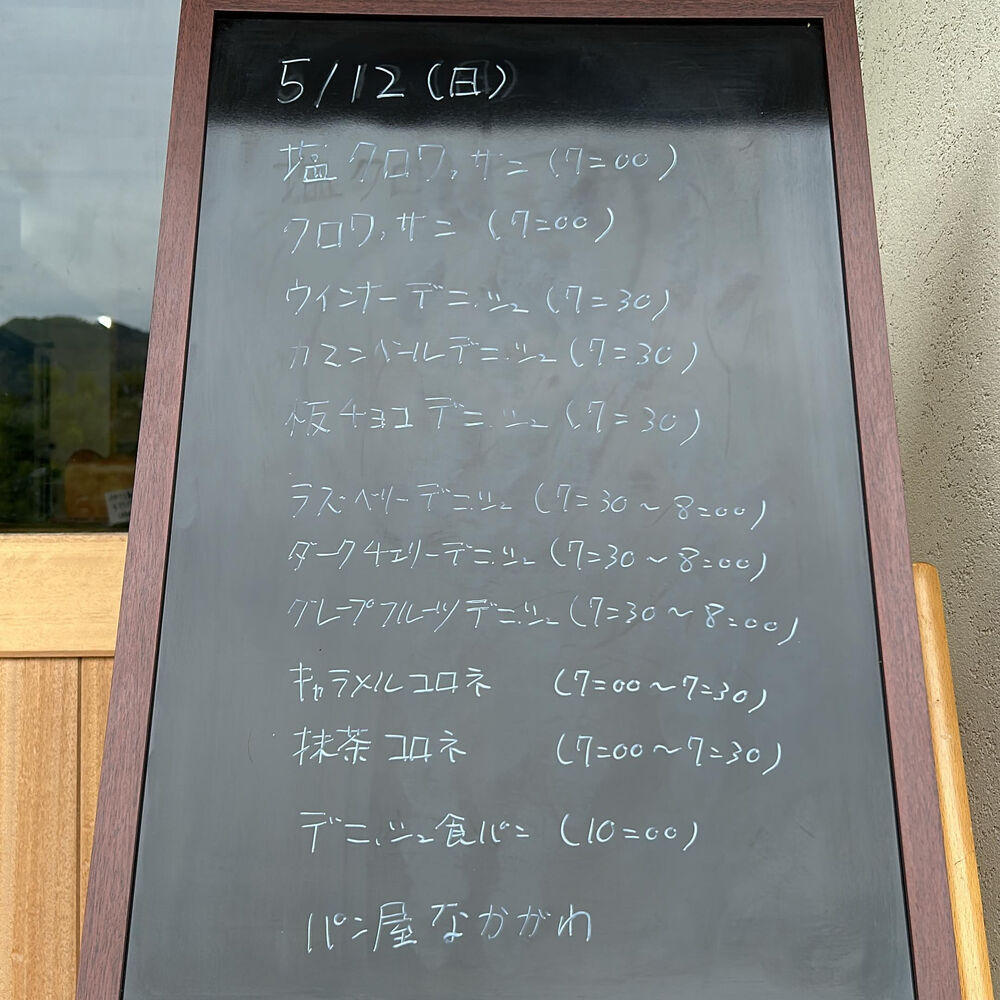 5/12(日)
塩クロワッサン(7:00)
クロワッサン(7:00)
ウインナーデニッシュ(7:30)
カマンベールデニッシュ(7:30)
板チョコデニッシュ(7:30)
ラズベリーデニッシュ(7:30~8:00)
ダークチェリーデニッシュ(7:30~8:00)
グレープフルーツデニッシュ(7:30~8:00)
キャラメルコロネ (7:00~7:30)
抹茶コロネ (7:00~7:30)
デニッシュ食パン(10:00)
パン屋なかがわ